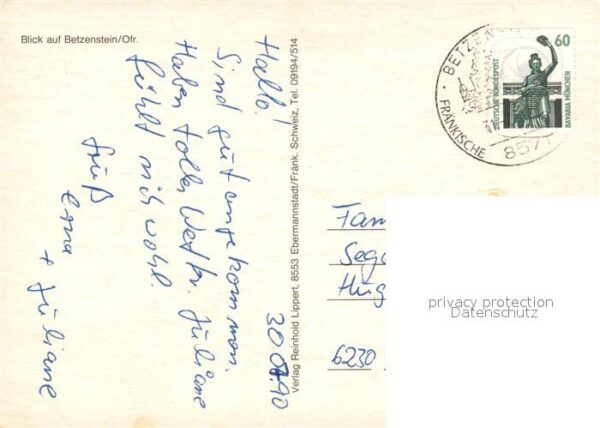 Blick auf Betzenstein/Ofr.
Hallo!
Sind gut angekommen.
Haben tolles Wetter. Juliane
fühlt sich wohl.
Gruß
Erna
+ Juliane
30.07.90
Verlag Reinhold Lippert, 8553 Ebermannstadt/Fränk. Schweiz, Tel. 09194/514
BETZEN
FRÄNKISCHE
8571
60
DEUTSCHE BUNDESPOST
BAVARIA MÜNCHEN
Fam
Sege
Hug
6230
privacy protection
Datenschutz